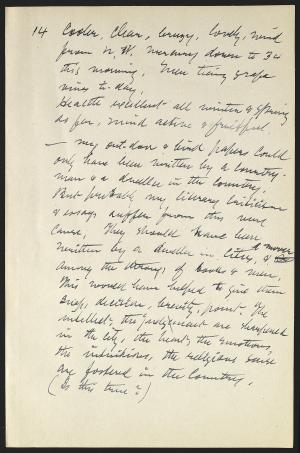 14 Cooler, clear, breezy, lovely, wind
from N. W. Mercury down to 34
this morning. Been tieing grape
vines to-day.
Health excellent all winter & spring
so far, mind active & fruitful.
— my out-door & bird papers could
only have been written by a country-
man & a dweller in the country.
But probably my literary criticism
& essays suffer from this very
cause. They should have been
written by a dweller in cities, & a mover
among the throngs of books & men.
This would have helped to give them
snap, decision, brevity, point. The
intellect, the judgement are sharpened
in the city, the heart, the emotions,
the intuitions, the religious sense
are fostered in the country.
(Is this true?)